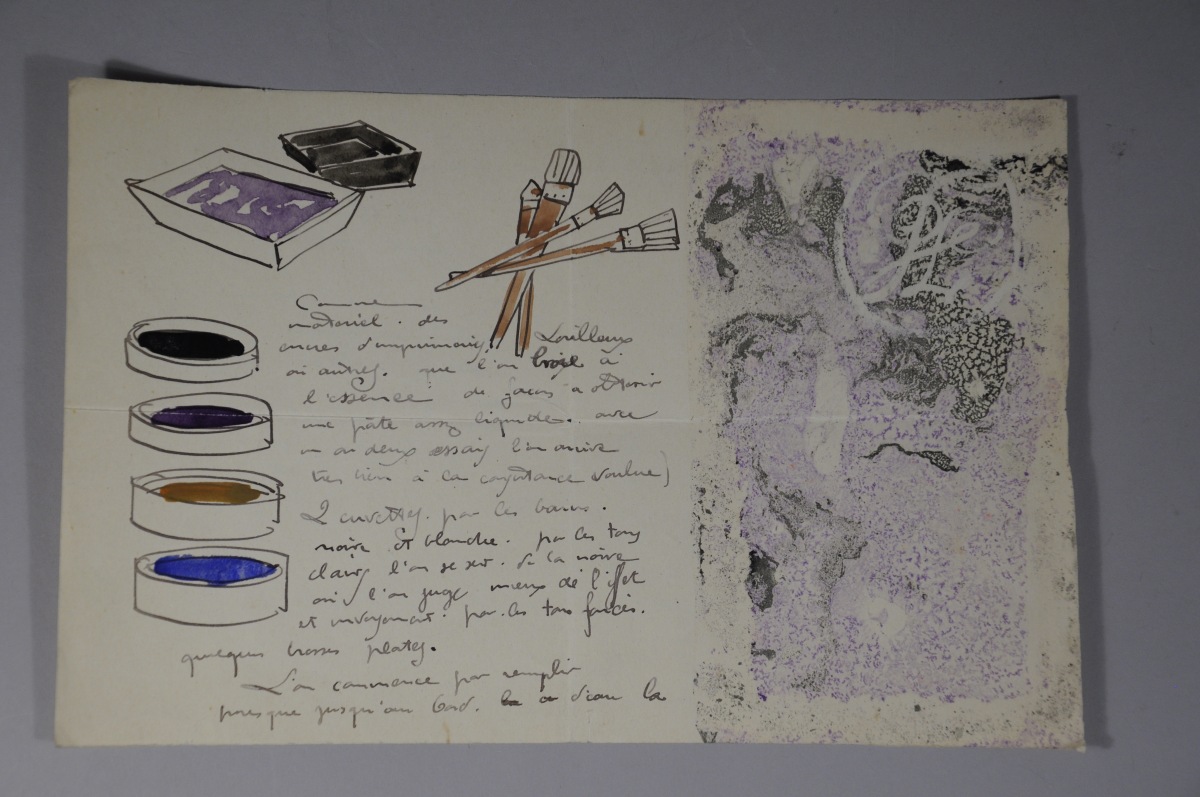 Comme
matériel. des
encres d'imprimerie, Lorilleux
ou autres. que l'on broie à
l'essence de façon à obtenir
une pâte assez liquide. avec
un ou deux essais l'on arrive
très bien à la consistance voulue)
2 cuvettes. par les bains.
noire et blanche. par les tons
clairs l'on se sert. de la noire
où l'on juge mieux de l'effet
et par les tons foncés.
quelques brosses plates.
L'on commence par remplir
presque jusqu'au bord. d'eau la